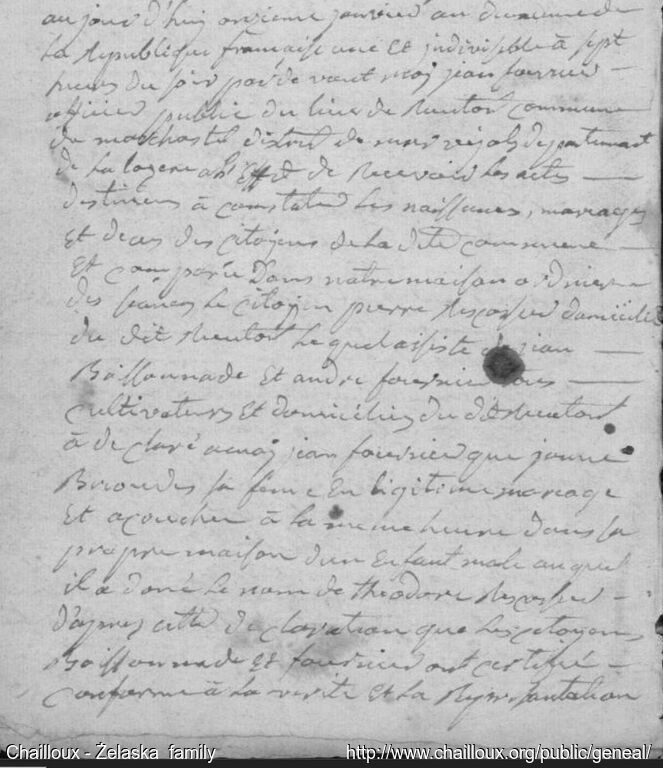 aujourd'huy onzieme janvier an deuxieme de
La Republique francaise une Et indivisible à sept
heures du soir par de vant moy jean fournier
officier public du lieu de Muntor commune
de marchastel district de departement
de La lozere Effet de Recevoir Les actes
destinees à constater Les naissances, mariages
Et deces des citoyens de La dite commune
Et comparée Dans notre maison ordinere
des Le citoyen pierre domicilié
du dit Le quel assiste de jean
Boissonnade Et andre fournier tous
cultivateurs Et domicilies du dit
à de claré a moy jean fournier que jeanne
Brioudes sa feme En legitime mariage
Et acoucher à la meme heure dans sa
propre maison dun Enfant male au quel
il a doné Le nom de theodore
d'apres cette de claration que Les citoyens
Boissonnade Et fournier ont certifié
conforme à La verite Et La Represantation
Chailloux - Żelaska family
http://www.chailloux.org/public/geneal/